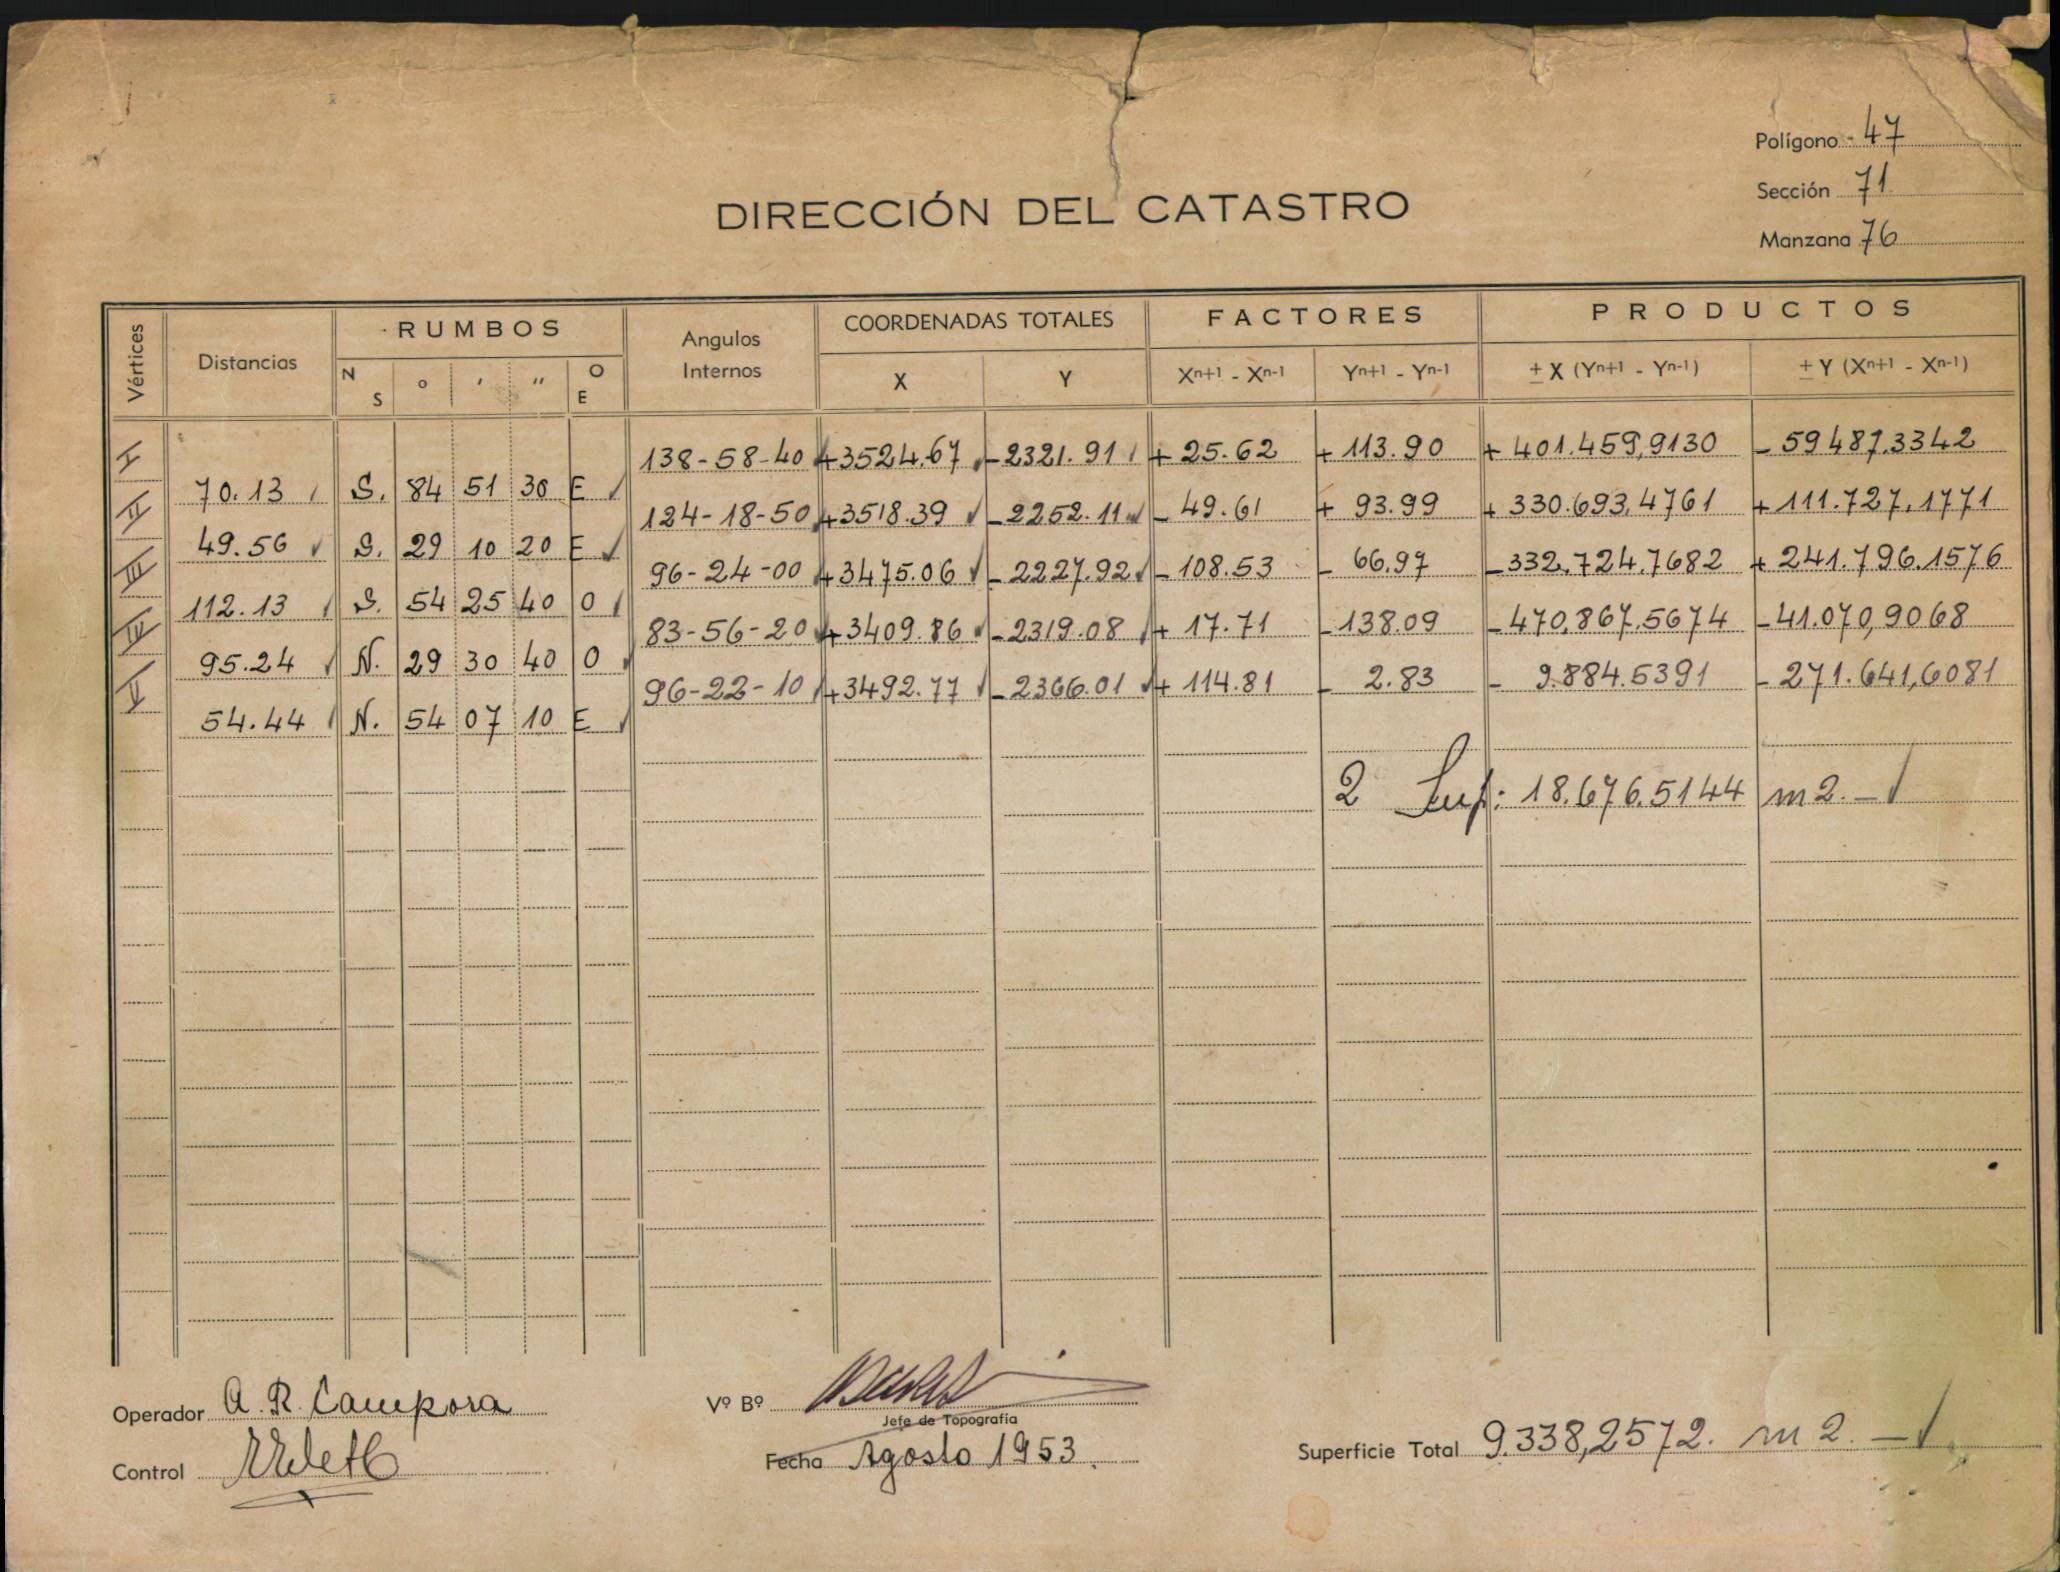 Polígono 47
Sección 71
Manzana 76
DIRECCIÓN DEL CATASTRO
Vértices Distancias RUMBOS Angulos Internos COORDENADAS TOTALES FACTORES PRODUCTOS
N S ° ' " O E X Y Xn+1 - Xn-1 Yn+1 - Yn-1 ± X (Yn+1 - Yn-1) ± Y (Xn+1 - Xn-1)
I 138-58-40 +3524.67 -2321.91 + 25.62 + 113.90 + 401.459,9130 - 59487.3342
70.13 S. 84 51 30 E
II 124-18-50 +3518.39 -2252.11 - 49.61 + 93.99 + 330.693,4761 + 111.727,1771
49.56 S. 29 10 20 E
III 96-24-00 +3475.06 -2227.92 - 108.53 - 66.97 -332.724,7682 + 241.796.1576
112.13 S. 54 25 40 O
IV 83-56-20 +3409.86 -2319.08 + 17.71 -138.09 -470.867.5674 -41.070,9068
95.24 N. 29 30 40 O
V 96-22-10 +3492.77 -2366.01 + 114.81 - 2.83 - 9.884.5391 - 271.641,6081
54.44 N. 54 07 10 E
2 Sup: 18.676.5144 m2.-
Operador A. R. Campora
Vº Bº
Jefe de Topografía
Control
Fecha Agosto 1953.
Superficie Total 9.338,2572. m2. -